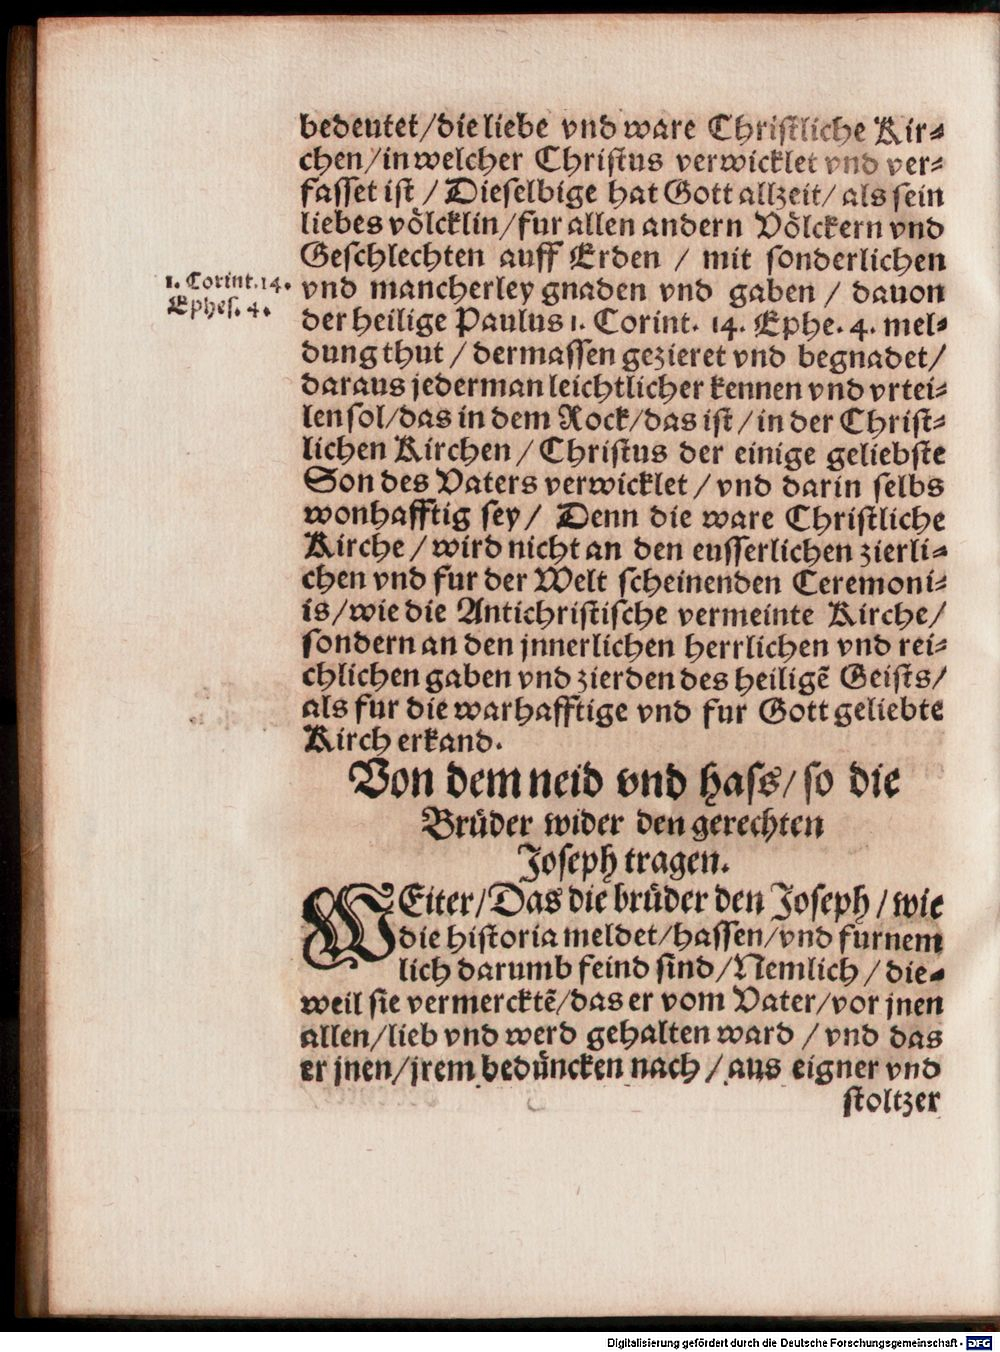 bedeutet/die liebe vnd ware Christliche Kir-
chen/in welcher Christus verwicklet vnd ver-
fasset ist / Dieselbige hat Gott allzeit/ als sein
liebes völcklin/fur allen andern Völckern vnd
Geschlechten auff Erden / mit sonderlichen
1. Corint. 14.
Ephes. 4.
vnd mancherley gnaden vnd gaben / dauon
der heilige Paulus 1. Corint. 14. Ephe. 4. mel-
dung thut / dermassen gezieret vnd begnadet/
daraus jederman leichtlicher kennen vnd vrtei-
len sol/das in dem Rock/das ist / in der Christ-
lichen Kirchen / Christus der einige geliebste
Son des Vaters verwicklet / vnd darin selbs
wonhafftig sey / Denn die ware Christliche
Kirche / wird nicht an den eusserlichen zierli-
chen vnd fur der Welt scheinenden Ceremoni-
is/wie die Antichristische vermeinte Kirche/
sondern an den jnnerlichen herrlichen vnd rei-
chlichen gaben vnd zierden des heiligẽ Geists/
als fur die warhafftige vnd fur Gott geliebte
Kirch erkand.
Von dem neid vnd hass/ so die
Brüder wider den gerechten
Joseph tragen.
WEiter/Das die brüder den Joseph / wie
die historia meldet/hassen/vnd fürnem
lich darumb feind sind/Nemlich / die-
weil sie vermercktẽ/das er vom Vater/vor jnen
allen/lieb vnd werd gehalten ward / vnd das
er jnen/jrem bedüncken nach / aus eigner vnd
stoltzer
Digitalisierung gefördert durch die Deutsche Forschungsgemeinschaft - DFG